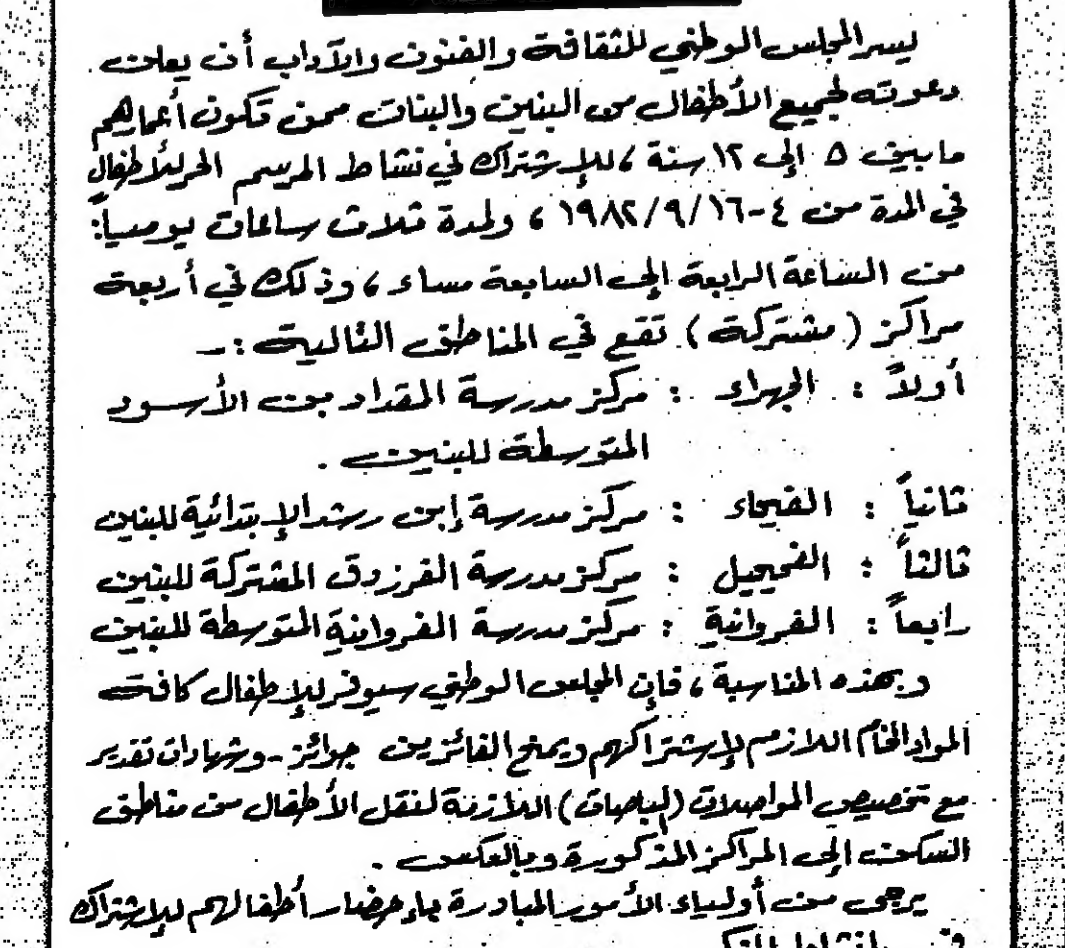 يسر المجلس الوطني للثقافة والفنون والآداب أن يعلن
دعوته لجميع الأطفال من البنين والبنات ممن تكون أعمارهم
ما بين ٥ إلى ١٢ سنة ، للإشتراك في نشاط المرسم الحر للأطفال
في المدة من ٤-١٩٨٢/٩/١٦ ، ولمدة ثلاث ساعات يومياً:
من الساعة الرابعة إلى السابعة مساء ، وذلك في أربعة
مراكز ( مشتركة ) تقع في المناطق التالية :ـ
أولاً : الجهراء : مركز مدرسة المقداد بن الأسود
المتوسطة للبنين .
ثانياً : الفيحاء : مركز مدرسة إبن رشد الإبتدائية للبنين
ثالثاً : الفحيحيل : مركز مدرسة الفرزدق المشتركة للبنين
رابعاً : الفروانية : مركز مدرسة الفروانية المتوسطة للبنين
وبهذه المناسبة ، فإن المجلس الوطني سيوفر للإطفال كافة
المواد الخام اللازم لإشتراكهم ويمنح الفائزين جوائز - وشهادات تقدير
مع تخصيص المواصلات (الباصات) اللازمة لنقل الأطفال من مناطق
السكن إلى المراكز المذكورة وبالعكس .
يرجى من أولياء الأمور المبادرة بإحضار أطفالهم للإشتراك